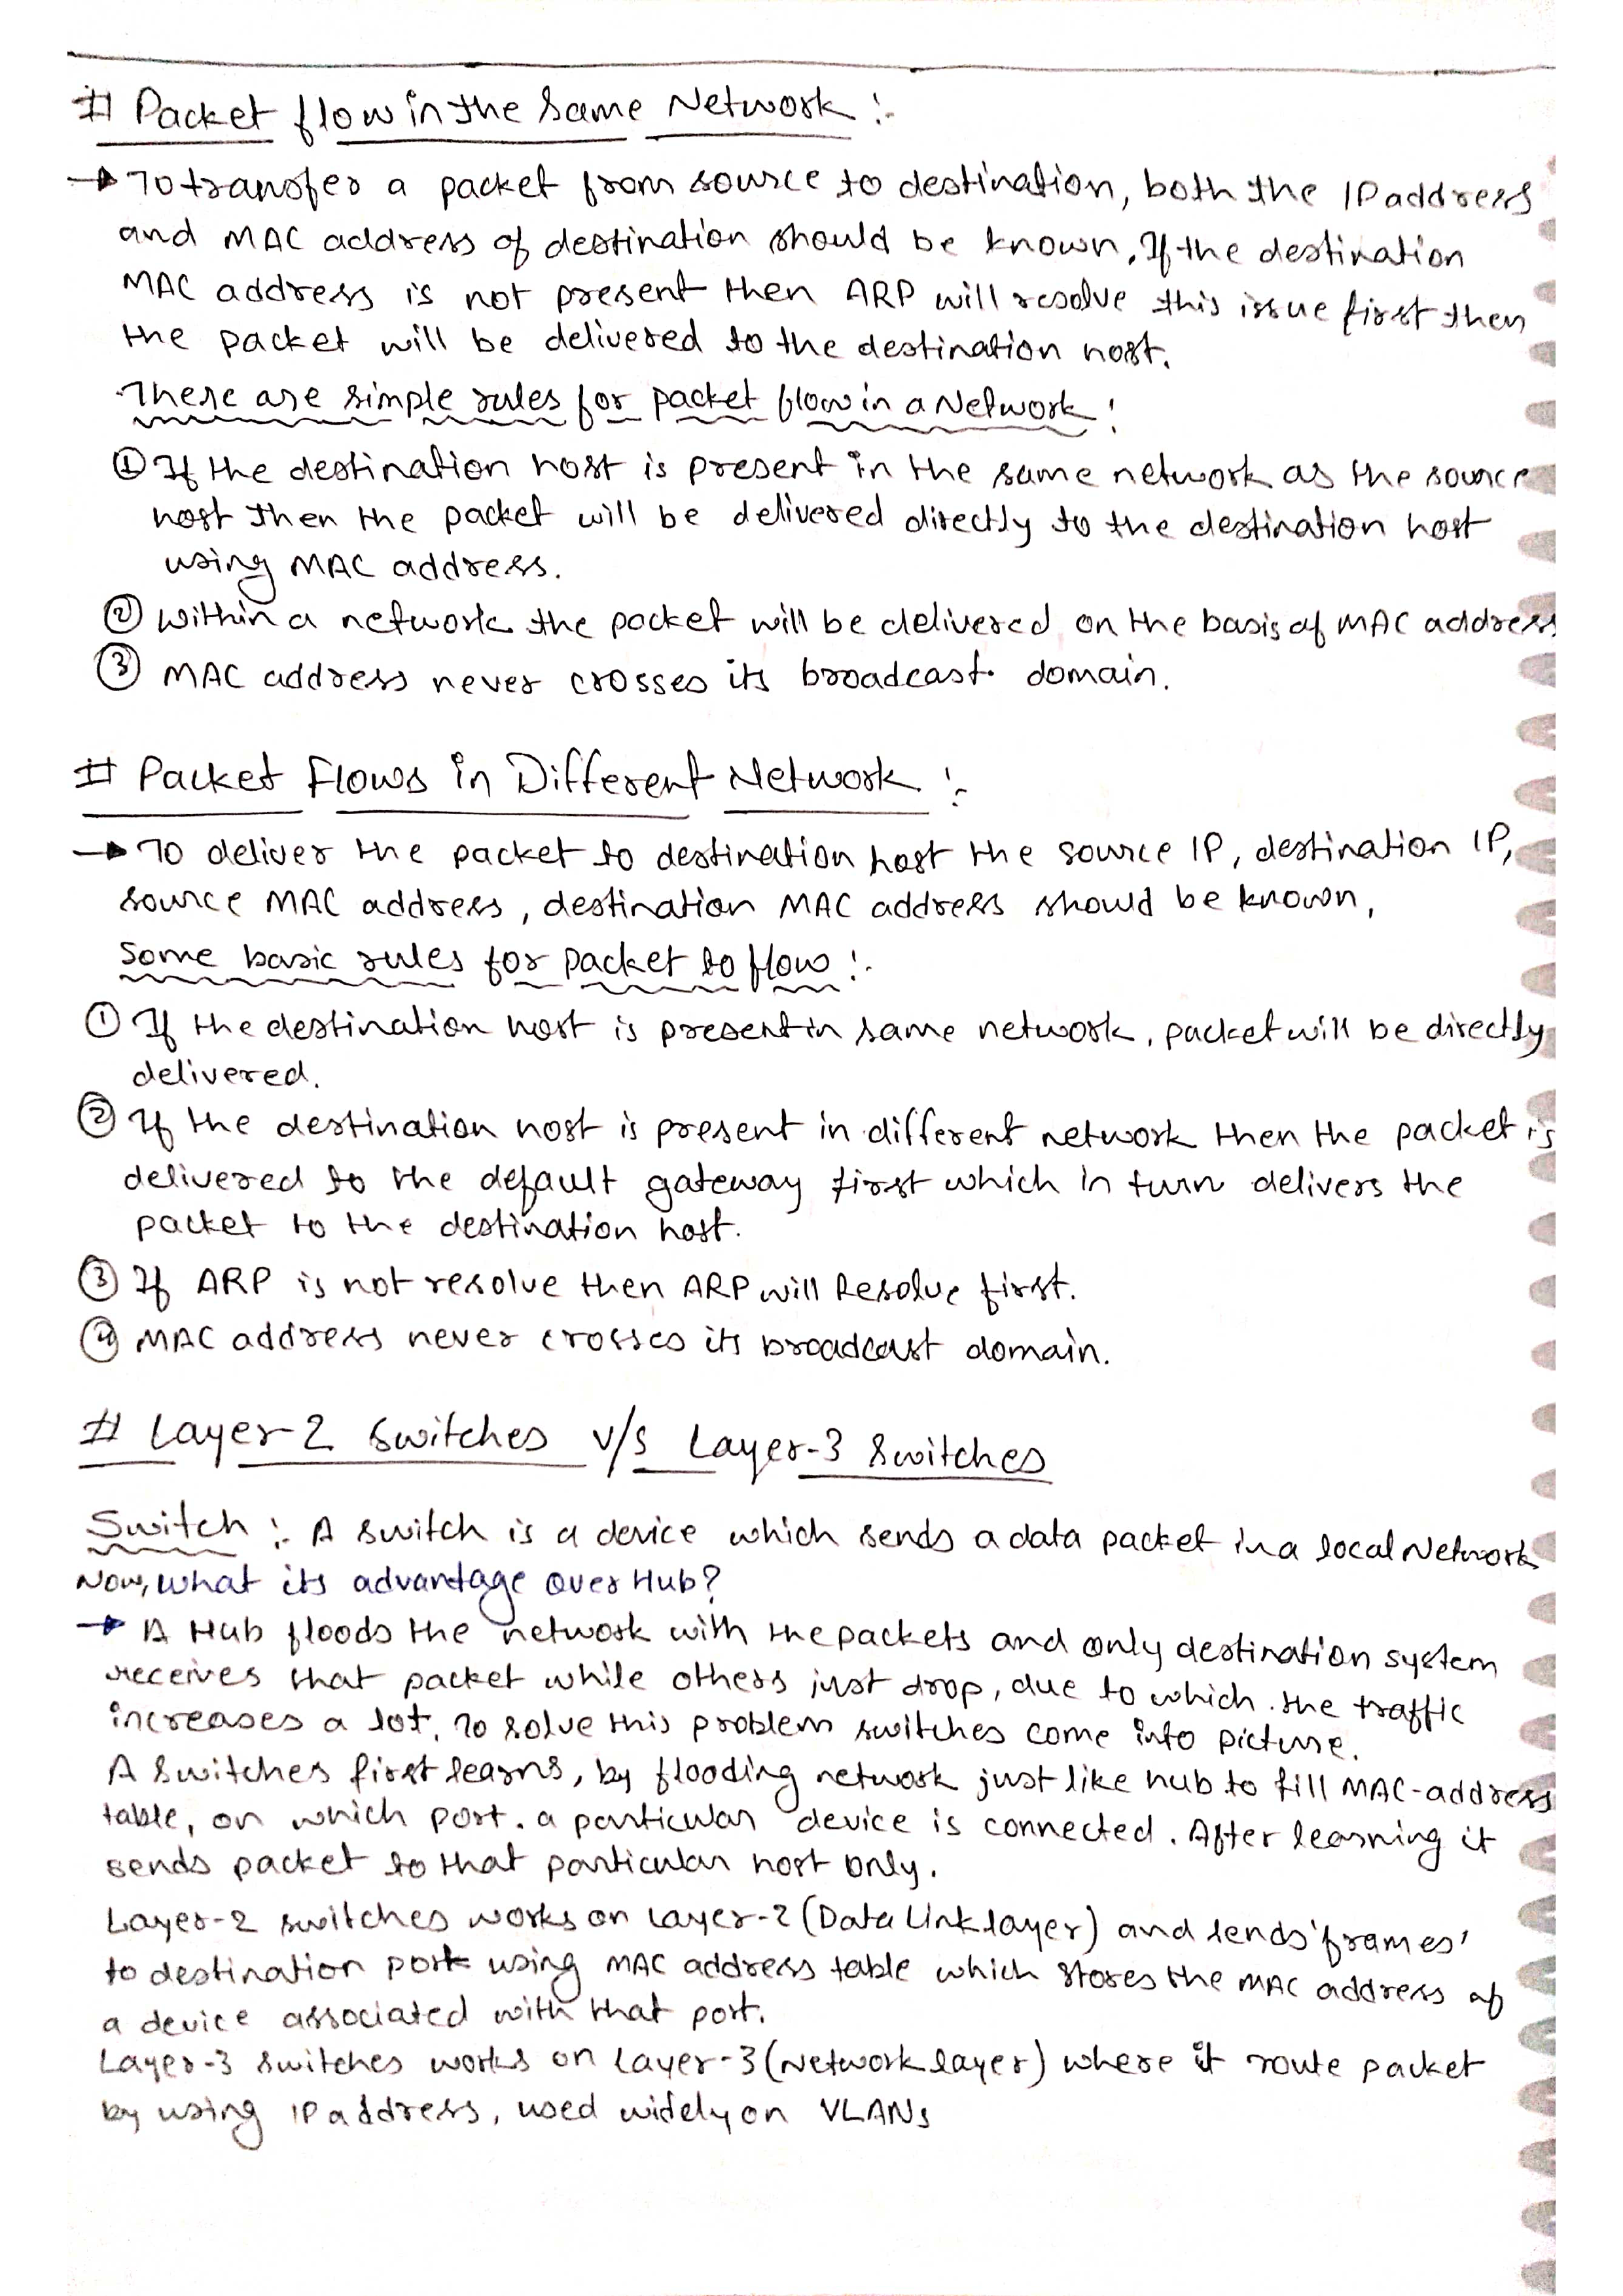 # Packet flow in the Same Network :-
→ To transfer a packet from source to destination, both the IP address
and MAC address of destination should be known, If the destination
MAC address is not present then ARP will resolve this issue first then
the packet will be delivered to the destination host.
There are simple rules for packet flow in a Network :
① If the destination host is present in the same network as the source
host then the packet will be delivered directly to the destination host
using MAC address.
② Within a network the packet will be delivered on the basis of MAC address
③ MAC address never crosses its broadcast domain.
# Packet Flows in Different Network :-
→ To deliver the packet to destination host the source IP, destination IP,
source MAC address, destination MAC address should be known,
Some basic rules for packet to flow :-
① If the destination host is present in same network, packet will be directly
delivered.
② If the destination host is present in different network then the packet is
delivered to the default gateway first which in turn delivers the
packet to the destination host.
③ If ARP is not resolve then ARP will Resolve first.
④ MAC address never crosses its broadcast domain.
# Layer-2 Switches v/s Layer-3 Switches
Switch :- A switch is a device which sends a data packet in a local Network
Now, what its advantage over Hub?
→ A Hub floods the network with the packets and only destination system
receives that packet while others just drop, due to which the traffic
increases a lot. To solve this problem switches come into picture.
A Switches first learns, by flooding network just like hub to fill MAC-address
table, on which port. a particular device is connected. After learning it
sends packet to that particular host only.
Layer-2 switches works on layer-2 (Data Link layer) and sends 'frames'
to destination port using MAC address table which stores the MAC address of
a device associated with that port.
Layer-3 Switches works on layer-3 (Network layer) where it route packet
by using IP address, used widely on VLANs